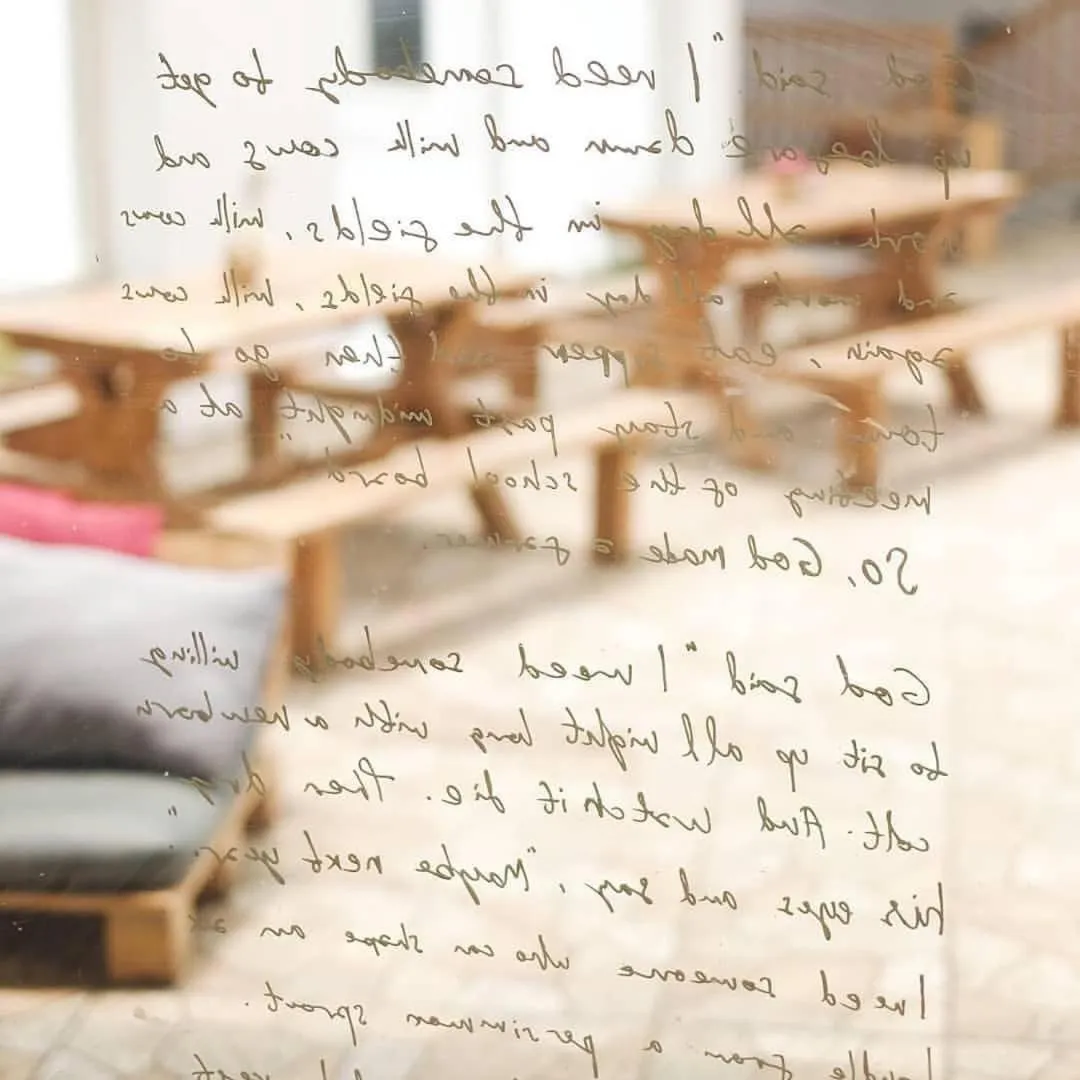 God said "I need somebody to get
up before dawn and milk cows and
work all day in the fields, milk cows
and work all day in the fields, milk cows
again, eat supper and then go to
town and stay past midnight" at a
meeting of the school board"
So, God made a farmer.
God said "I need somebody willing
to sit up all night long with a newborn
colt. And watch it die. Then dry
his eyes and say, "Maybe next year."
I need someone who can shape an ax
handle from a persimmon sprout.